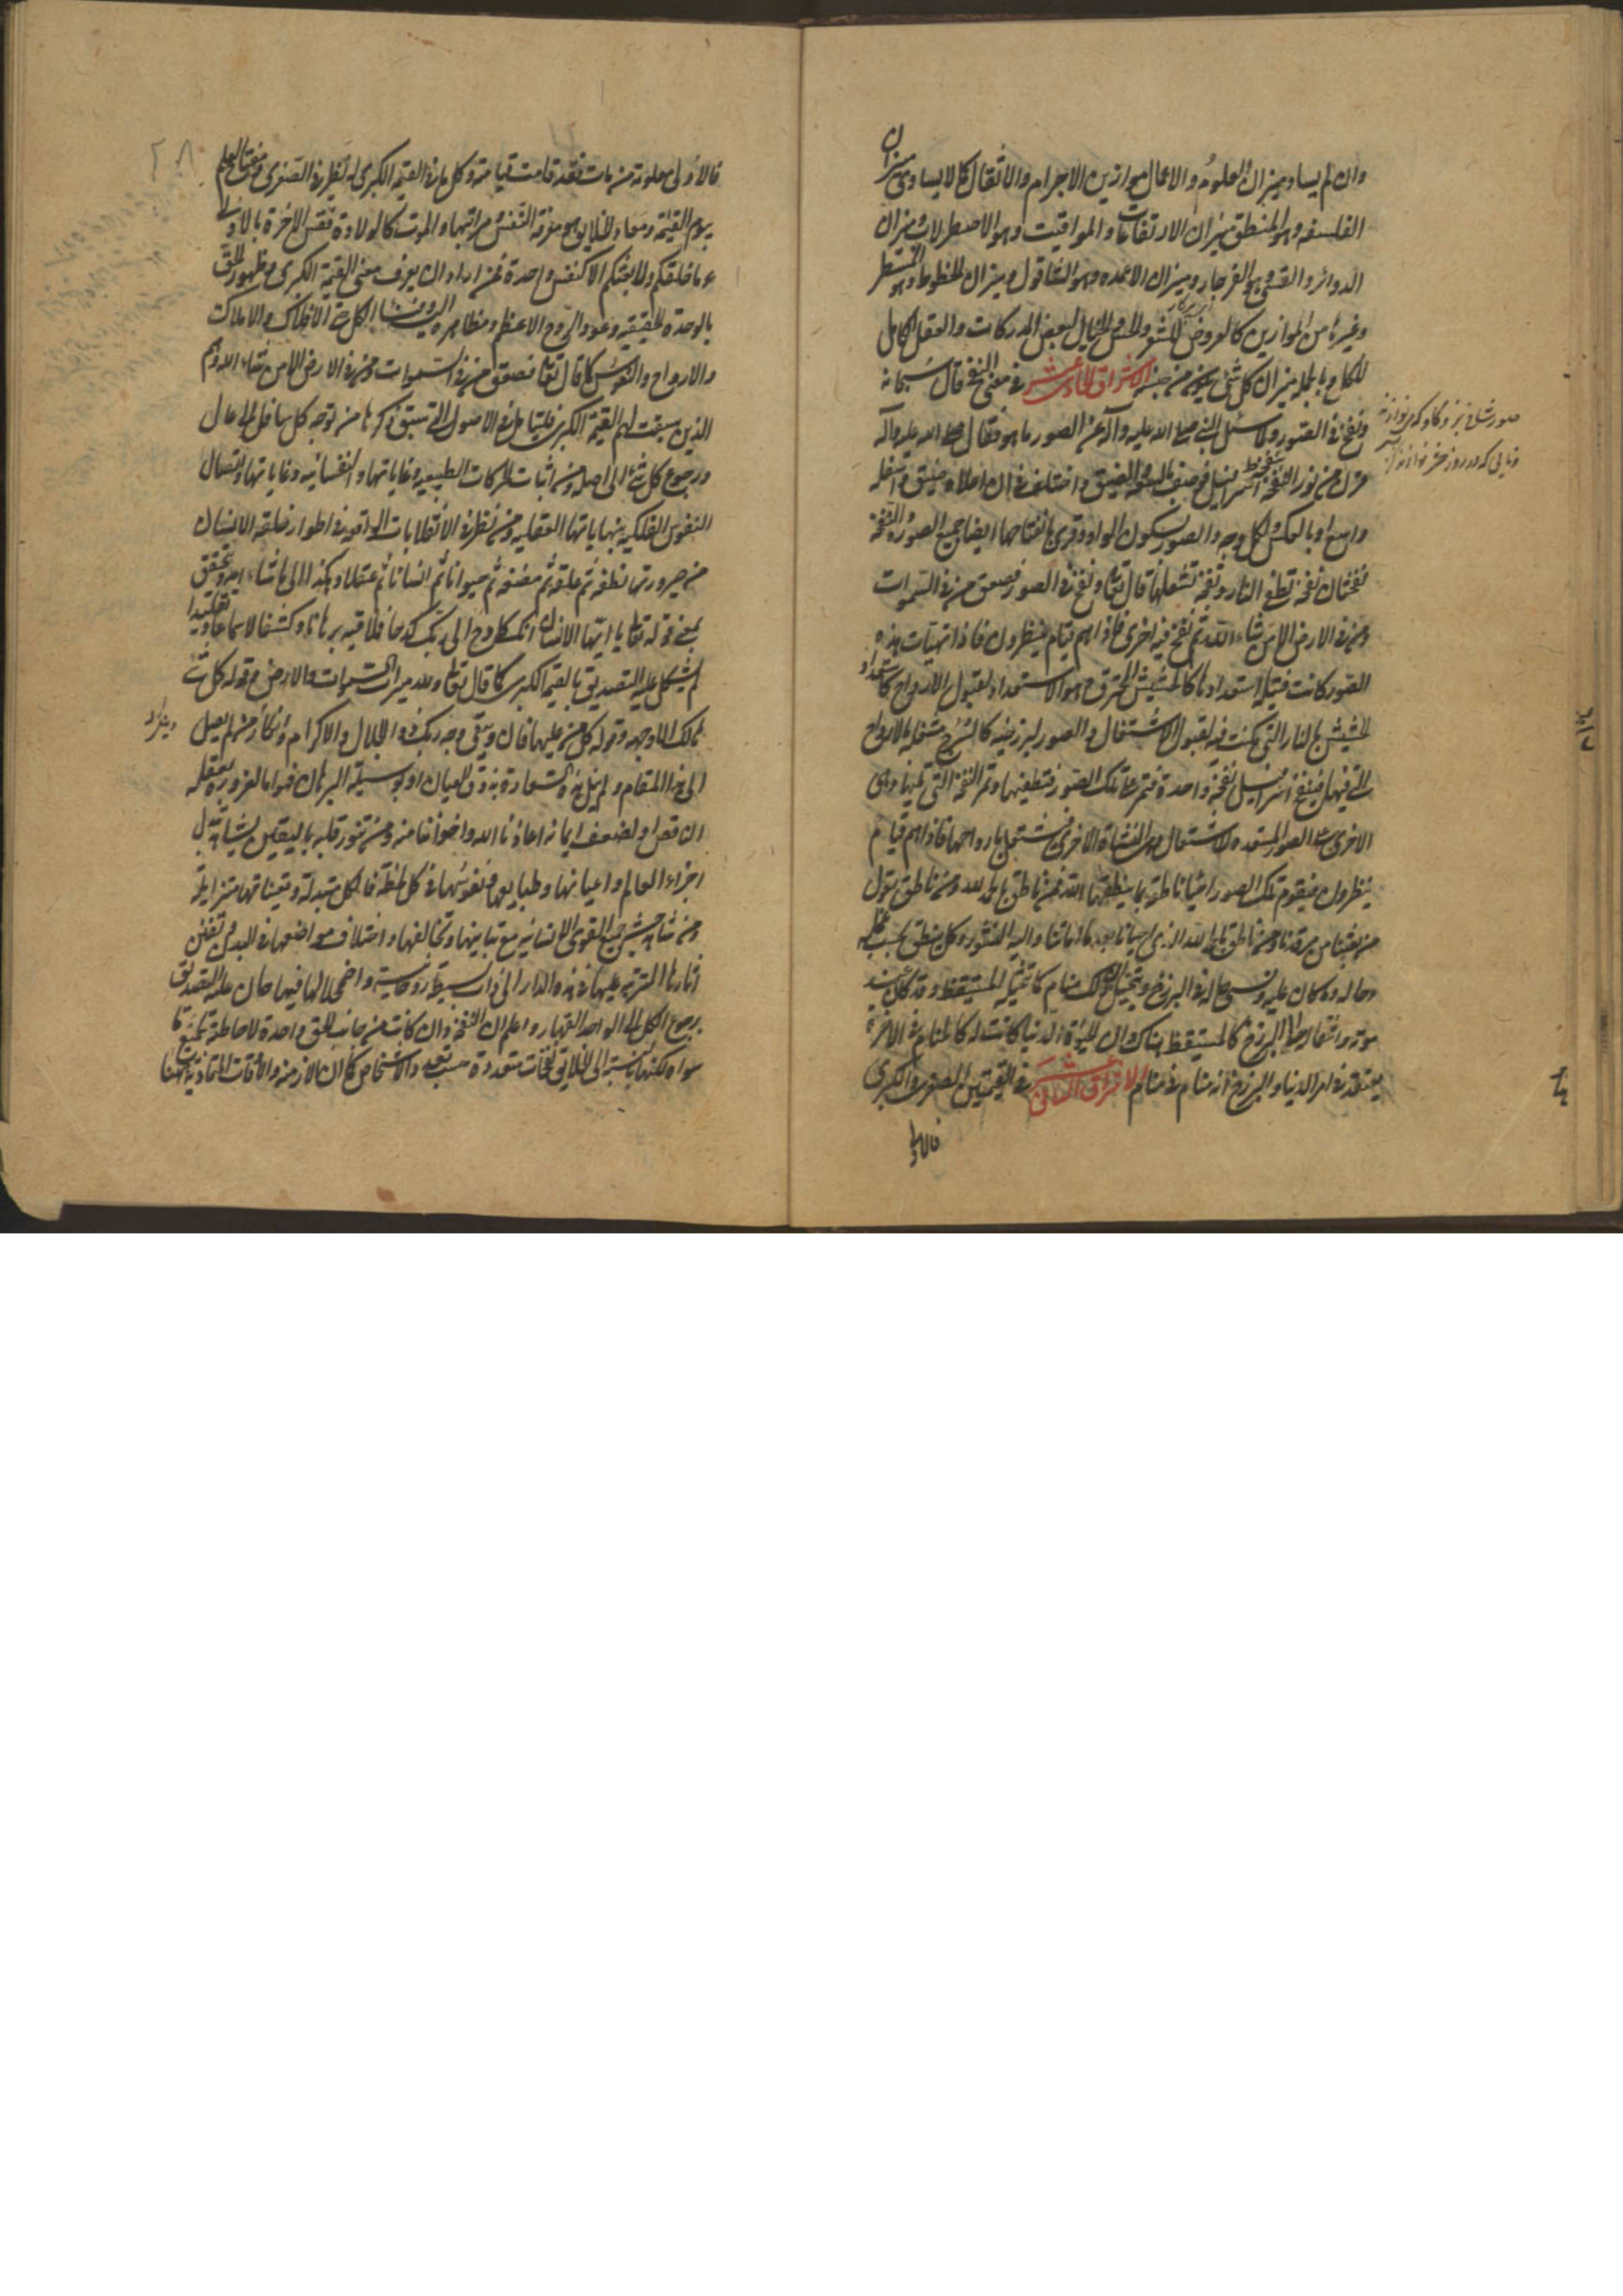 وان لم يساو ميزان العلوم والاعمال موازين الاجرام والاثقال كما لا يساوى ميزان
الفلسفه وهو المنطق ميزان الارتفاعات والمواقيت وهو الاصطرلاب وميزان
الدوائر والقسى وهو الفرجار وميزان الاعمده وهو الشاقول وميزان الخطوط وهو المسطر
وغيرها من الموازين كالعروض للشعر والحس والخيال لبعض المدركات والعقل الكامل
للكل وبالجمله ميزان كل شئ يكون من جنسه الاشراق الحادى عشر فى معنى النفخ قال سبحانه
ونفخ فى الصور ولما سئل النبى صلى الله عليه وآله عن الصور ما هو فقال صلى الله عليه وآله
قرن من نور التقمه اسرافيل فوصف بالسعه والضيق واختلف فى ان اعلاه ضيق واسفله
واسع او بالعكس ولكل وجه والصور بسكون الواو وقرئ بانفتاحها ايضا جمع الصوره والنفخه
نفختان نفخه تطفئ النار ونفخه تشعلها قال تعالى ونفخ فى الصور فصعق من فى السموات
ومن فى الارض الا من شاء الله ثم نفخ فيه اخرى فاذا هم قيام ينظرون فاذا تهيأت هذه
الصور كانت فتيله استعدادها كالحشيش المحترق وهو الاستعداد لقبول الارواح كاستعداد
الحشيش بالنار التى كمنت فيه لقبول الاشتعال والصور البرزخيه كالسرج مشتعله بالارواح
التى فيها فينفخ اسرافيل نفخه واحدة فتمر على تلك الصور فتطفيها وتمر النفخه التى تليها وهى
الاخرى على الصور المستعده للاشتعال وهى النشأة الاخرى فتشتعل بارواحها فاذا هم قيام
ينظرون فيقوم تلك الصور احياء ناطقه بما ينطقها الله فمن ناطق بالحمد لله ومن ناطق يقول
من بعثنا من مرقدنا ومن ناطق بالحمد لله الذى احيانا بعد ما اماتنا واليه النشور وكل ينطق بحسب علمه
وحاله وما كان عليه ونسى حاله فى البرزخ ويتخيل ان ذلك منام كما تخيله المستيقظ وقد كان عند
موته وانتقاله الى البرزخ كالمستيقظ هناك وان الحيوة الدنيا كانت له كالمنام وفى الآخرة
يعتقد فى امر الدنيا والبرزخ انه منام فى منام الاشراق الثانى عشر فى القيمتين الصغرى والكبرى
فالاولى
فالاولى معلومة من مات فقد قامت قيامته وكل ما فى القيمة الكبرى له نظير فى الصغرى ومفتاح العلم
بيوم القيمة ومعاد الخلايق هو معرفة النفس ومراتبها والموت كالولادة فقس الآخرة بالاولى
وما خلقكم ولا بعثكم الا كنفس واحدة فمن اراد ان يعرف معنى القيمة الكبرى وظهور الحق
بالوحدة الحقيقيه وعود الروح الاعظم ومظاهره اليه وفناء الكل حتى الافلاك والاملاك
والارواح والنفوس كما قال تعالى فصعق من فى السموات ومن فى الارض الا من شاء الله وهم
الذين سبقت لهم القيمة الكبرى فليتامل فى الاصول التى سبق ذكرها من توجه كل سافل الى عال
ورجوع كل شئ الى اصله ومن اثبات الحركات الطبيعيه وغاياتها والنفسانيه وغاياتها واتصال
النفوس الفلكيه بنهاياتها العقليه ومن نظر فى الانقلابات الواقعه فى اطوار خلقه الانسان
من صيرورتها نطفه ثم علقه ثم مضغه ثم حيوانا ثم انسانا ثم عقلا وهكذا الى ما شاء الله وتحقق
بمعنى قوله تعالى يا ايها الانسان انك كادح الى ربك كدحا فملاقيه برهانا وكشفا لا سماعا وتقليدا
لم يشكل عليه التصديق بالقيمة الكبرى كما قال تعالى ولله ميراث السموات والارض وقوله كل شئ
هالك الا وجهه وقوله كل من عليها فان ويبقى وجه ربك ذو الجلال والاكرام وانكار من لم يصل
الى هذا المقام ولم ينل هذه السعادة بذوق العيان او بوسيلة البرهان فهو اما لغروره بعقله
الناقص او لضعف ايمانه اعاذنا الله واخواننا منه ومن تنور قلبه باليقين يشاهد تبدل
اجزاء العالم واعيانها وطبايعها ونفوسها فى كل لحظة فالكل متبدلة وتعيناتها متزايلة
ومن شاهد حشر جميع القوى الانسانيه مع تباينها وتخالفها واختلاف مواضعها فى البدن وتفنن
آثارها المترتبه عليها فى هذه الدار الى ذات بسيطة روحانية واضمحلالها فيها هان عليه التصديق
برجوع الكل الى الواحد القهار واعلم ان النفخه وان كانت من جانب الحق واحدة لاحاطته بجميع ما
سواه لكنها بالنسبة الى الخلايق نفخات متعددة حسب تعدد الاشخاص كما ان الازمنه والاوقات المتمادية هيهنا